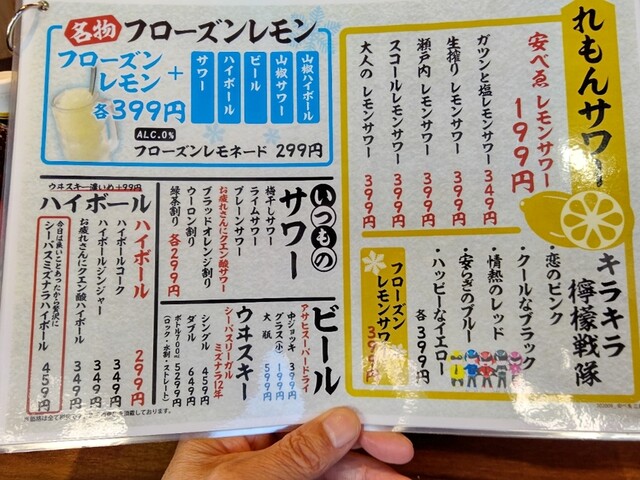 名物 フローズンレモン
フローズン
レモン
+
各399円
サワー
ハイボール
ビール
山椒サワー
山椒ハイボール
ALC.0%
フローズンレモネード 299円
れもんサワー
安べゑ レモンサワー 199円
ガツンと塩レモンサワー 349円
生搾りレモンサワー 399円
瀬戸内レモンサワー 399円
スコールレモンサワー 399円
大人のレモンサワー 399円
キラキラ
檸檬戦隊
・恋のピンク
・クールなブラック
・情熱のレッド
・安らぎのブルー
・ハッピーなイエロー
各399円
フローズン
レモンサワー
399円
いつもの
サワー
梅干しサワー
ライムサワー
プレーンサワー
お疲れさんにクエン酸サワー
ブラッドオレンジ割り
ウーロン割り
緑茶割り
各299円
ウヰスキー濃いめ+99円
ハイボール
ハイボール 299円
ハイボールコーク 349円
ハイボールジンジャー 349円
お疲れさんにクエン酸ハイボール 349円
今日は良いことあったから贅沢に
シーバスミズナラハイボール 459円
ビール
アサヒスーパードライ
中ジョッキ 399円
グラス(小) 199円
大瓶 599円
ウヰスキー
シーバスリーガル
ミズナラ12年
シングル 459円
ダブル 649円
ボトル700ml 5299円
(ロック・水割・ストレート)